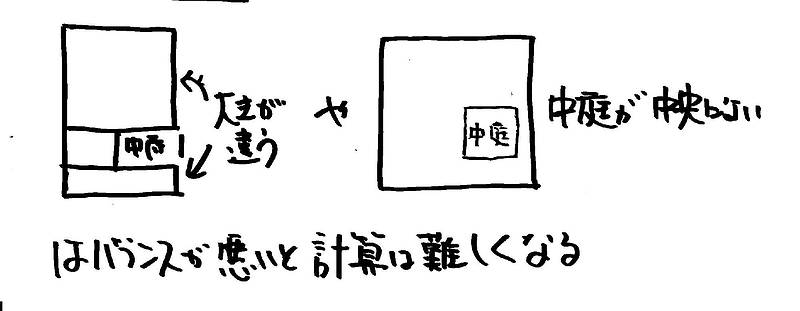 大きが
違う
中庭
や
中庭
中庭が中央にない
はバランスが悪いと計算は難しくなる